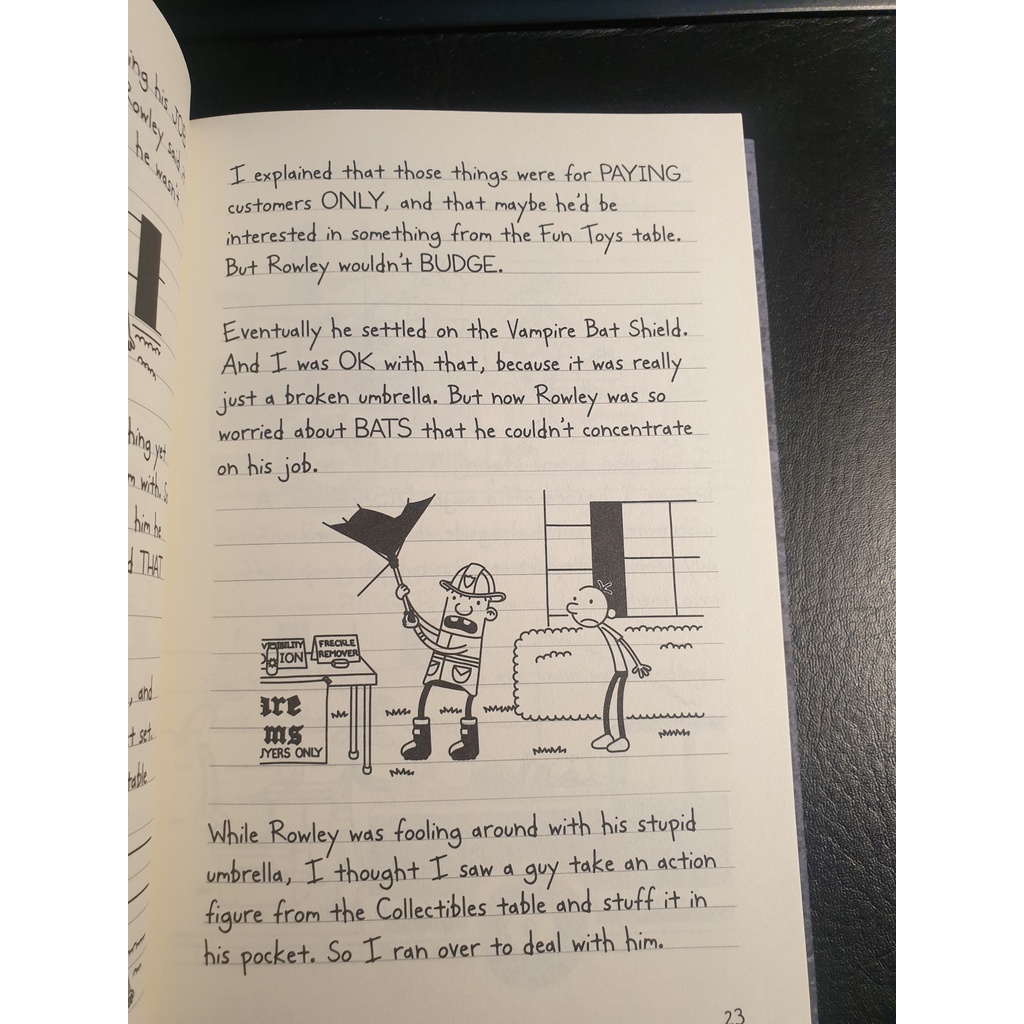 ing his JOB
Rowley said
he wasn't
hing yet
m with. S
him he
d THAT
, and
t set.
table
I explained that those things were for PAYING
customers ONLY, and that maybe he'd be
interested in something from the Fun Toys table.
But Rowley wouldn't BUDGE.
Eventually he settled on the Vampire Bat Shield.
And I was OK with that, because it was really
just a broken umbrella. But now Rowley was so
worried about BATS that he couldn't concentrate
on his job.
FRECKLE
REMOVER
IBILITY
ION
are
ms
YERS ONLY
While Rowley was fooling around with his stupid
umbrella, I thought I saw a guy take an action
figure from the Collectibles table and stuff it in
his pocket. So I ran over to deal with him.
23